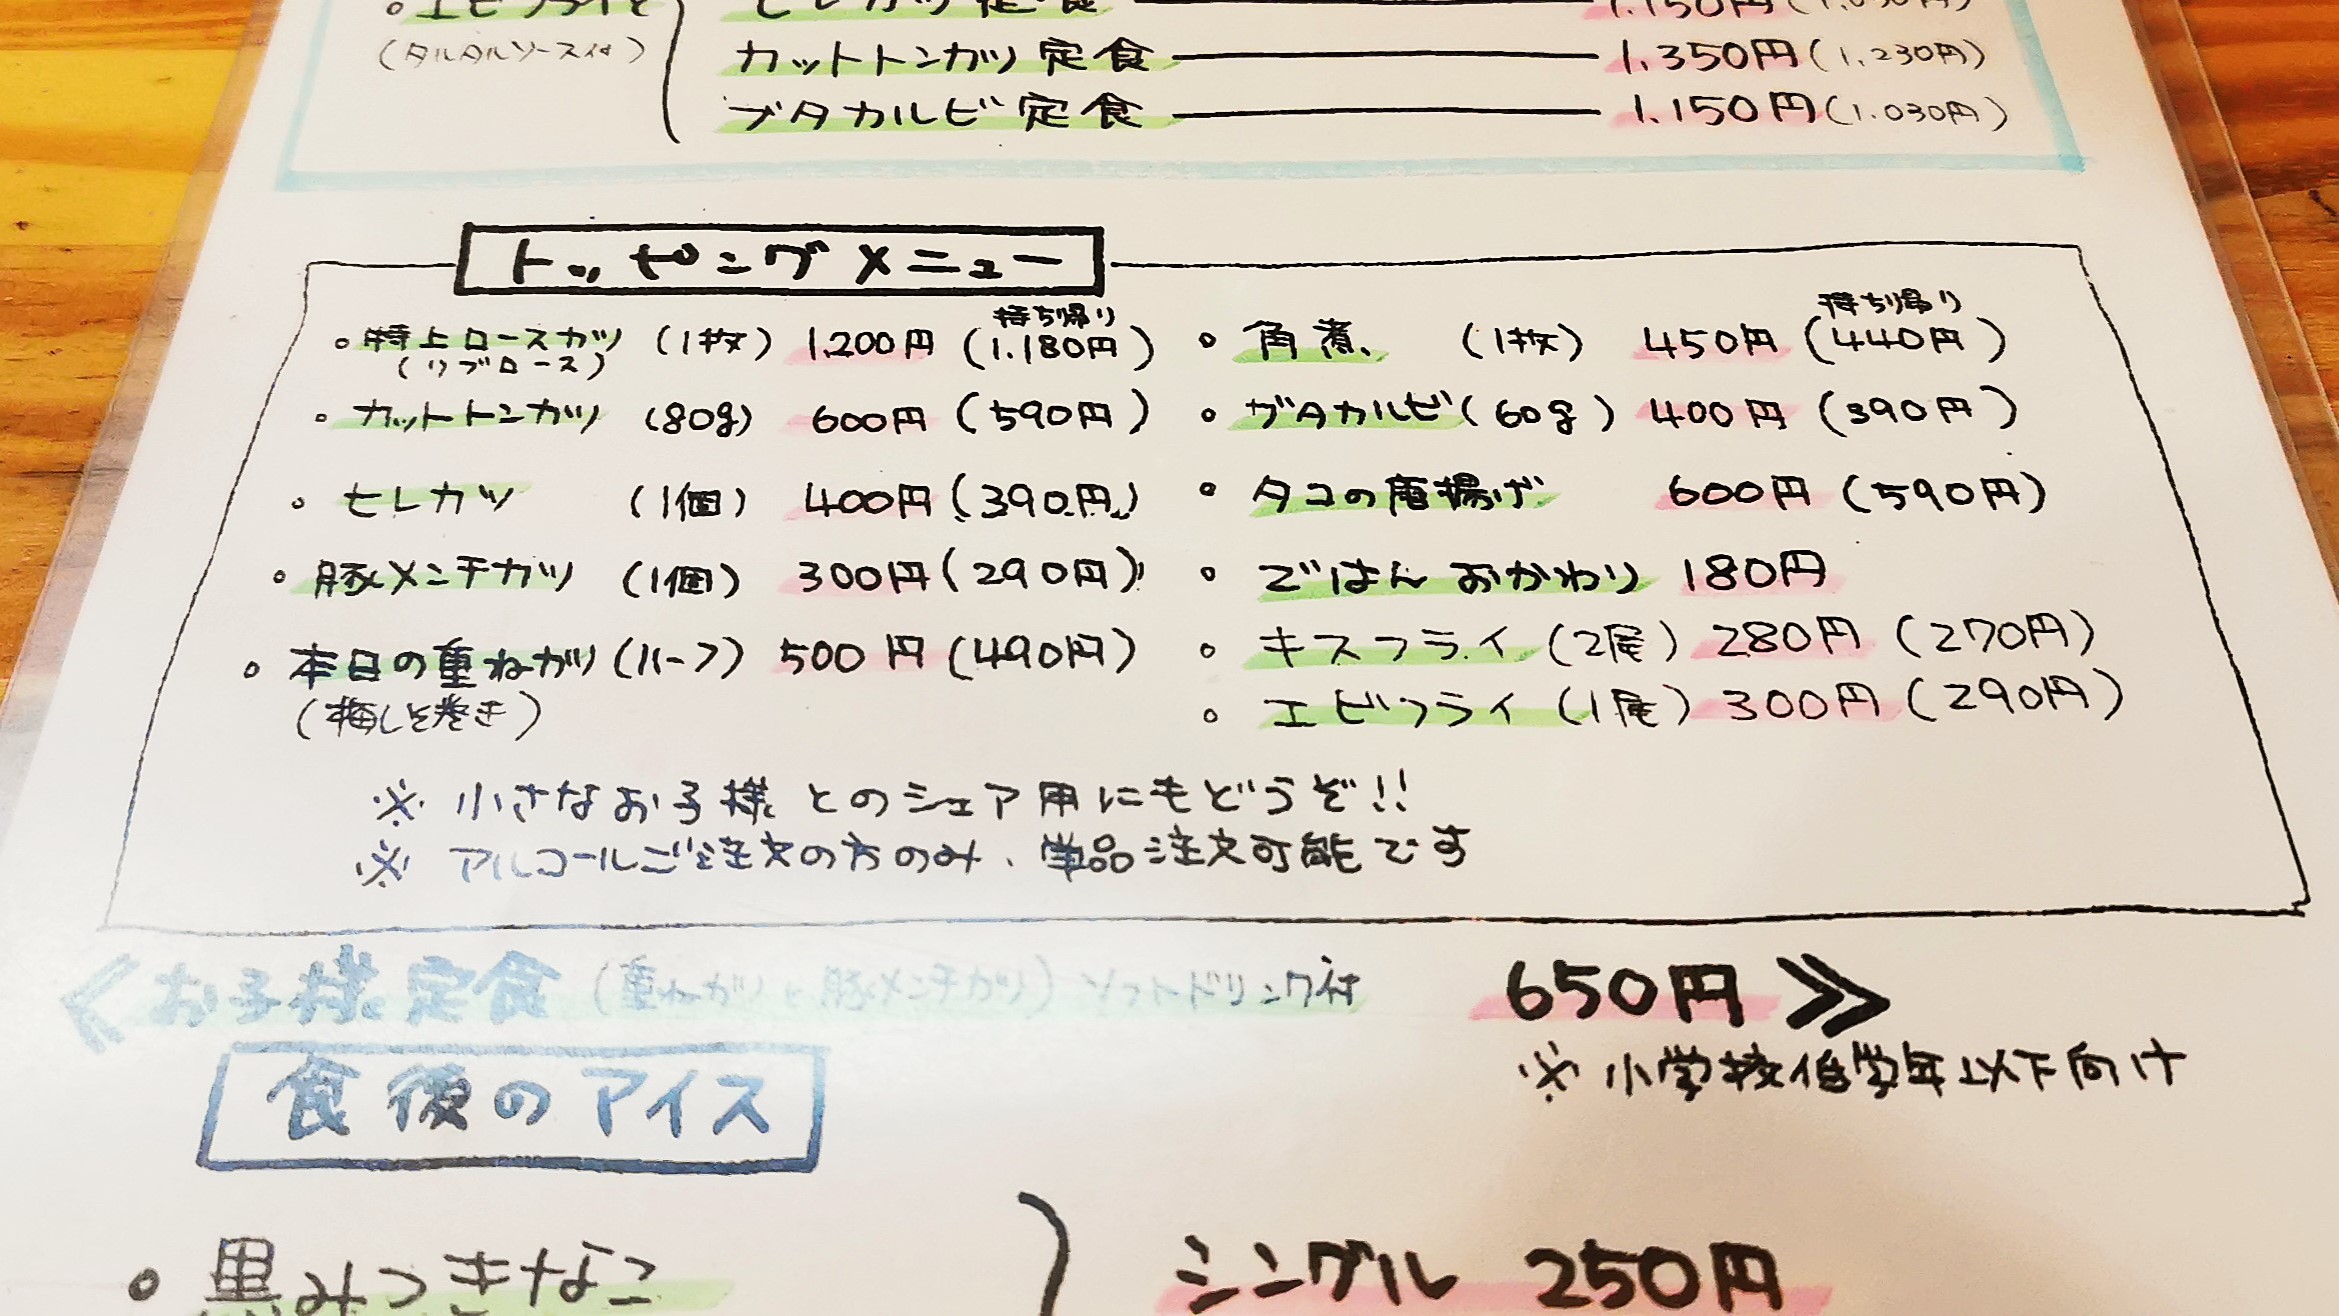 ・エビフライ
(タルタルソース付)
ヒレカツ定食 1.150円(1.030円)
カットトンカツ定食 1.350円(1.230円)
ブタカルビ定食 1.150円(1.030円)
トッピングメニュー
・特上ロースカツ (1枚) 1.200円 (1.180円) 持ち帰り
(リブロース)
・カットトンカツ (80g) 600円 (590円)
・ヒレカツ (1個) 400円 (390円)
・豚メンチカツ (1個) 300円 (290円)
・本日の重ねカツ (ハーフ) 500円 (490円)
(梅しそ巻き)
・角煮 (1枚) 450円 (440円) 持ち帰り
・ブタカルビ (60g) 400円 (390円)
・タコの唐揚げ 600円 (590円)
・ごはんおかわり 180円
・キスフライ (2尾) 280円 (270円)
・エビフライ (1尾) 300円 (290円)
※ 小さなお子様とのシェア用にもどうぞ!!
※ アルコールご注文の方のみ、単品注文可能です
≪お子様定食 (重ねカツと豚メンチカツ) ソフトドリンク付 650円≫
※ 小学校低学年以下向け
食後のアイス
・黒みつきなこ
シングル 250円